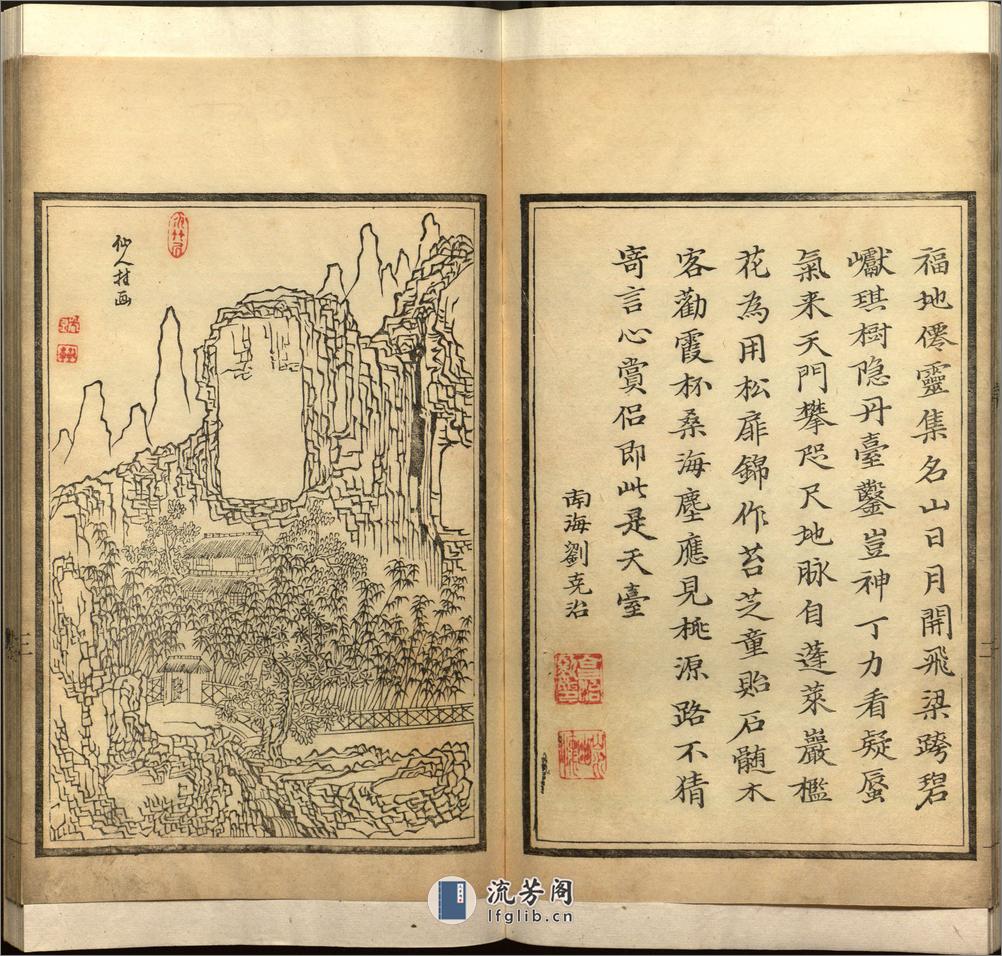 福地僊靈集名山日月開飛梁跨碧
巘琪樹隐丹臺鑿豈神丁力看疑蜃
氣来天門攀咫尺地脉自蓬萊巖檻
花為用松扉錦作苔芝童貽石髓木
客勸霞杯桑海塵應見桃源路不猜
寄言心賞侣即此是天臺
南海劉克治
二
仙人挂画
三
流芳阁
lfglib.cn